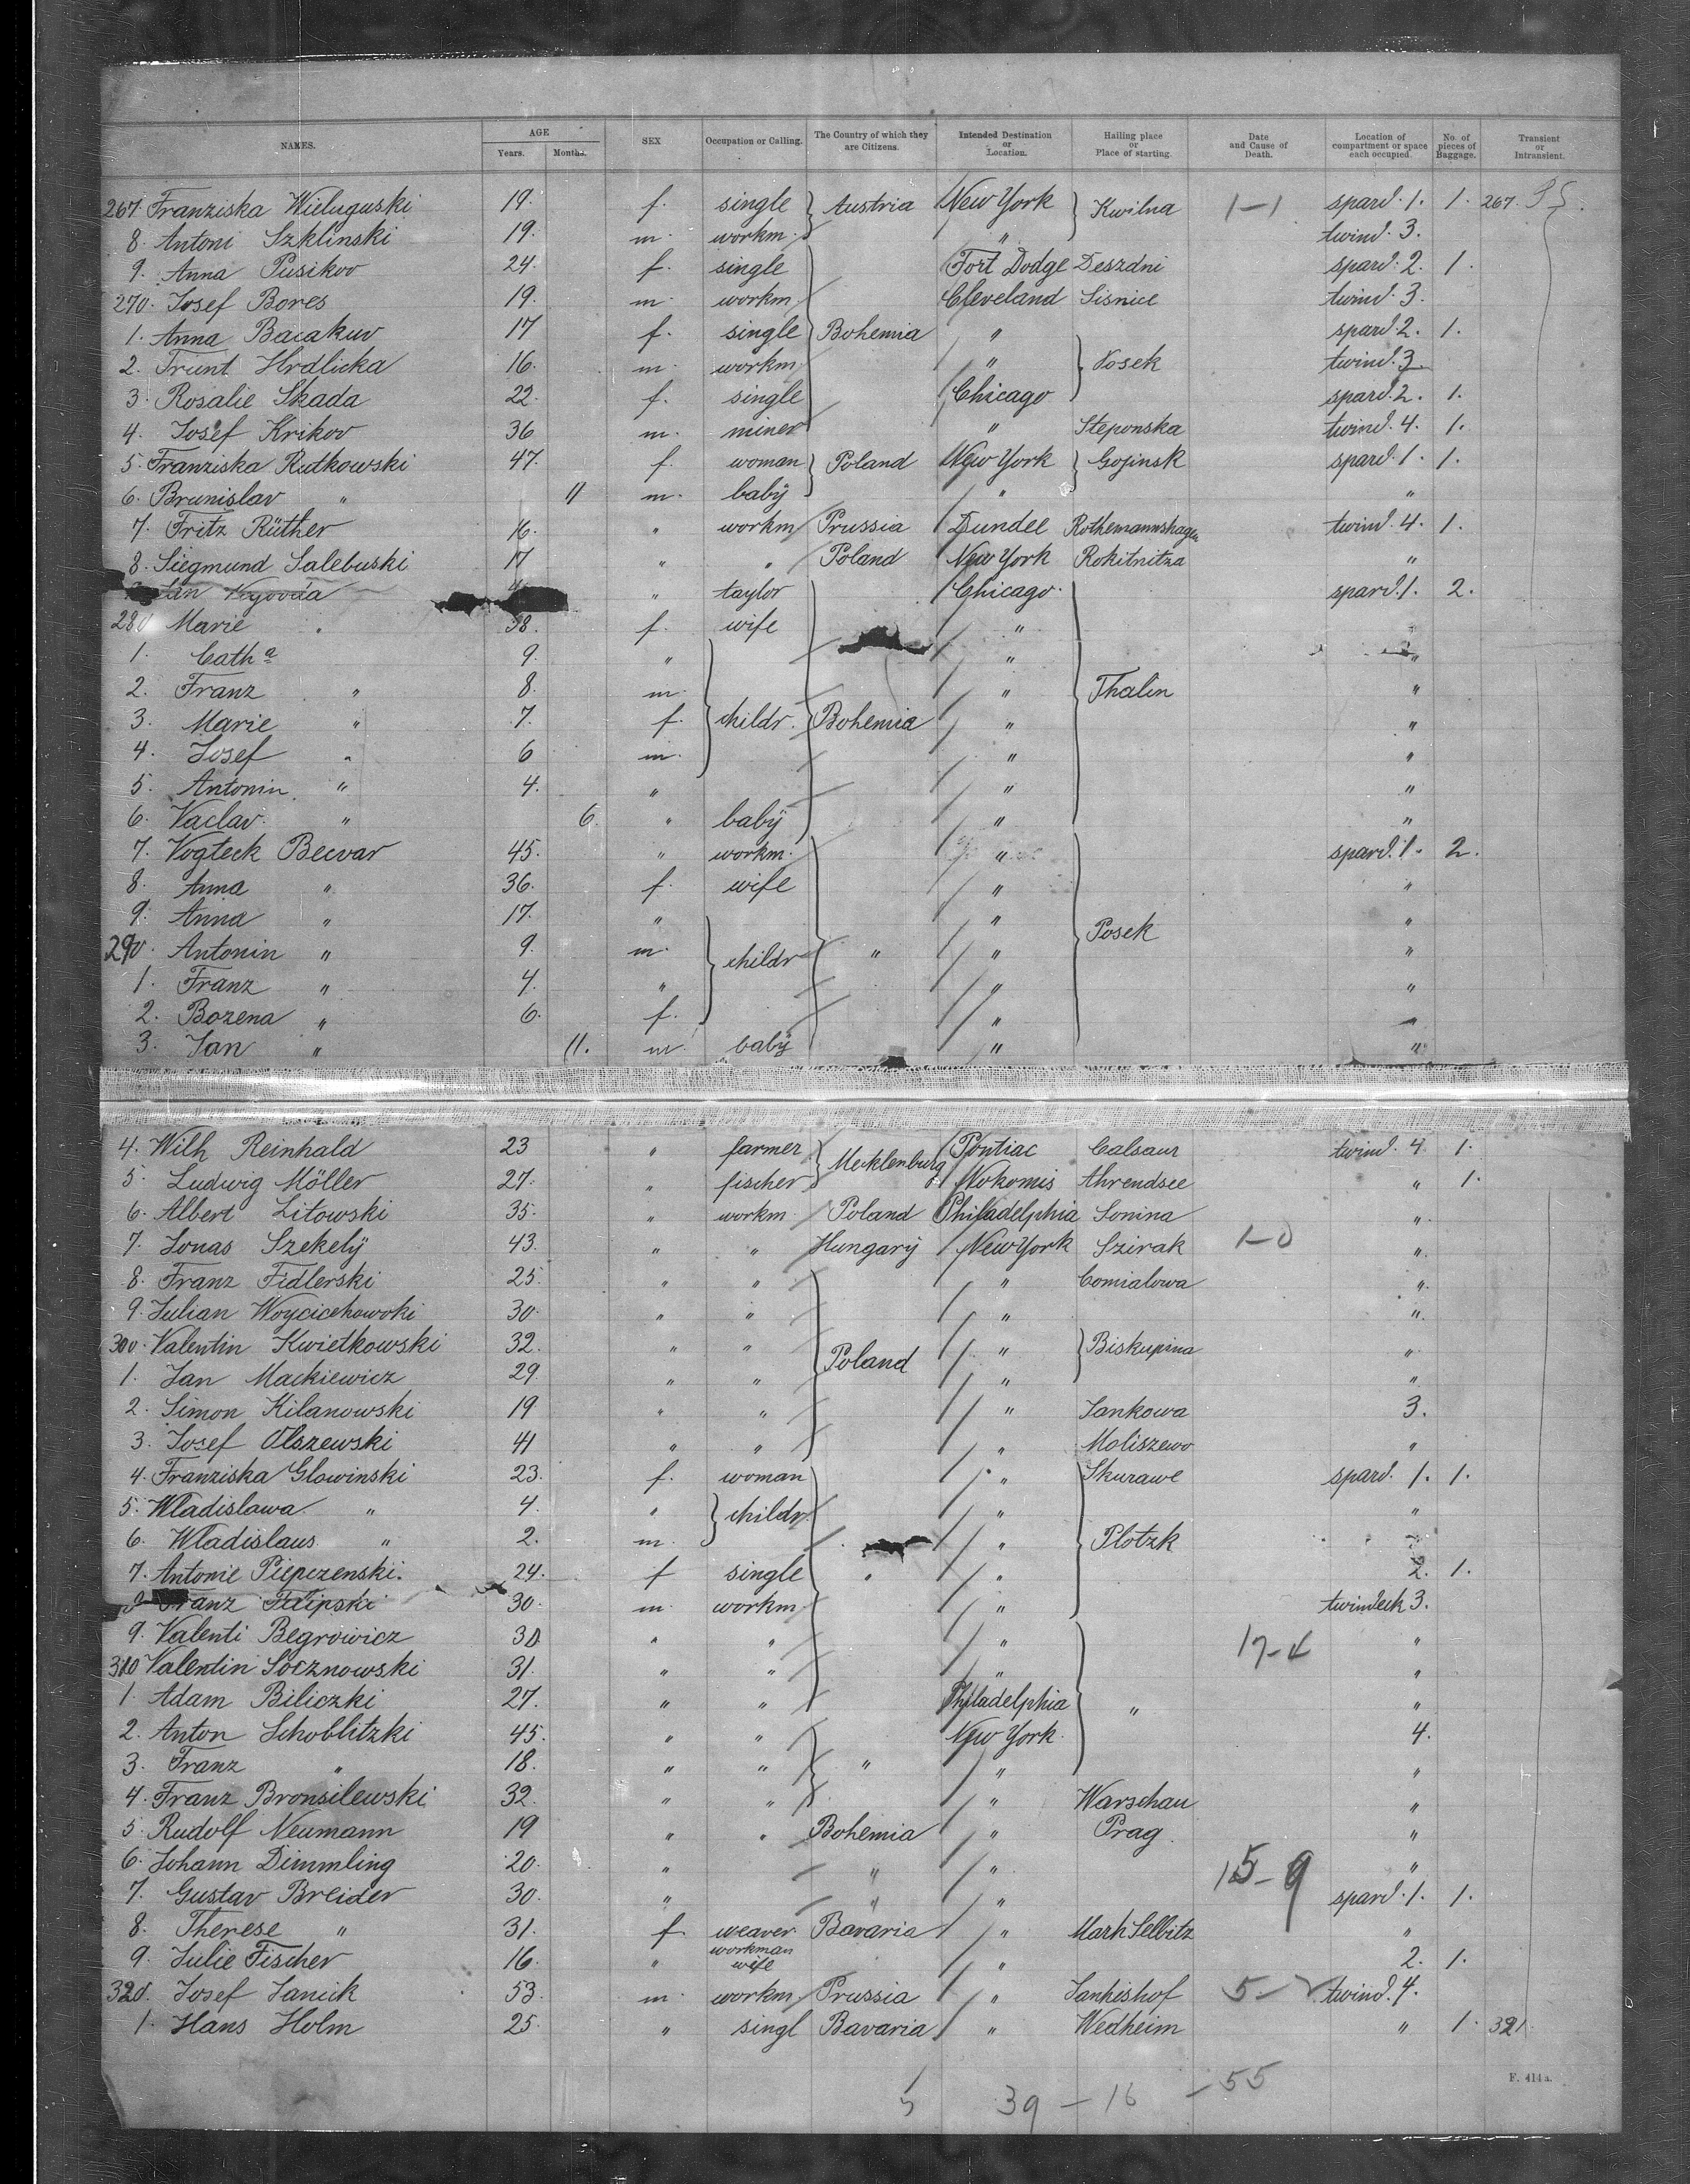 NAMES. AGE Years. Months. SEX Occupation or Calling. The Country of which they are Citizens. Intended Destination or Location. Hailing place or Place of starting. Date and Cause of Death. Location of compartment or space each occupied. No. of pieces of Baggage. Transient or Intransient.
267. Franziska Wieluguski 19. f. single Austria New York Kwilna 1-1 spard. 1. 1. 267.
8. Antoni Szklinski 19. m. workm. " twind. 3.
9. Anna Pusikov 24. f. single Fort Dodge Deszdni spard. 2. 1.
270. Josef Bores 19. m. workm. Cleveland Lisnice twind. 3.
1. Anna Bacakuv 17 f. single Bohemia " spard. 2. 1.
2. Frunt Hrdlicka 16. m. workm. " Posek twind. 3.
3. Rosalie Skada 22. f. single Chicago spard. 2. 1.
4. Josef Krikov 36 m. miner " Steponska twind. 4. 1.
5. Franziska Rutkowski 47. f. woman Poland New York Gojinsk spard. 1. 1.
6. Brunislav " 11 m. baby " "
7. Fritz Rüther 16. " workm. Prussia Dundee Rothemannshagen twind. 4. 1.
8. Siegmund Salebuski 17 " " Poland New York Rokitnitza "
Jan " taylor Chicago. spard. 1. 2.
280 Marie " 38. f. wife " "
1. Cath a 9. " " "
2. Franz " 8. m. " Thalin "
3. Marie " 7. f. childr. Bohemia " "
4. Josef " 6 m. " "
5. Antonin " 4. " " "
6. Vaclav " 6. " baby " "
7. Vogteck Becvar 45. " workm. " spard. 1. 2.
8. Anna " 36. f. wife " "
9. Anna " 17. " " Posek "
290. Antonin " 9. m. childr " " "
1. Franz " 4. " " "
2. Bozena " 6. f. " "
3. Jan " 11. m. baby " "
4. Wilh Reinhald 23 " farmer Mecklenburg Pontiac Calsaur twind. 4. 1.
5. Ludwig Möller 27. " fischer Nokomis Ahrendsee " 1.
6. Albert Litowski 35. " workm. Poland Philadelphia Sonina "
7. Jonas Szekely 43. " " Hungary New York Szirak 1-0 "
8. Franz Fidlerski 25. " " " Comialowa "
9. Julian Woycicchowski 30. " " " "
300. Valentin Kwietkowski 32. " " Poland " Biskupina "
1. Jan Mackiewicz 29. " " " "
2. Simon Kilanowski 19 " " " Jankowa 3.
3. Josef Olszewski 41 " " " Moliszewo "
4. Franziska Glowinski 23. f. woman " Skurawe spard. 1. 1.
5. Wladislawa " 4. " childr. " "
6. Wladislaus " 2. m. " Plotzk "
7. Antonie Piepczenski. 24. f single " " 2. 1.
Franz Filipski 30. m. workm. " twindeck 3.
9. Valenti Begrowicz 30 " " " 17-4 "
310 Valentin Socznowski 31. " " " "
1. Adam Biliczki 27. " " Philadelphia " "
2. Anton Schoblitzki 45. " " New York 4.
3. Franz " 18. " " " " "
4. Franz Bronsilewski 32. " " " Warschau "
5. Rudolf Neumann 19 " " Bohemia " Prag. "
6. Johann Dimmling 20. " " " 15-9 "
7. Gustav Breider 30. " " " spard. 1. 1.
8. Therese " 31. f. weaver. Bavaria " Mark Selbitz "
9. Julie Fischer 16. " workman wife " 2. 1.
320. Josef Janick 53. m. workm. Prussia " Jankishof 5- twind. 4.
1. Hans Holm 25. " singl Bavaria " Wedheim " 1. 321.
5 39 - 16 - 55
F. 414 a.